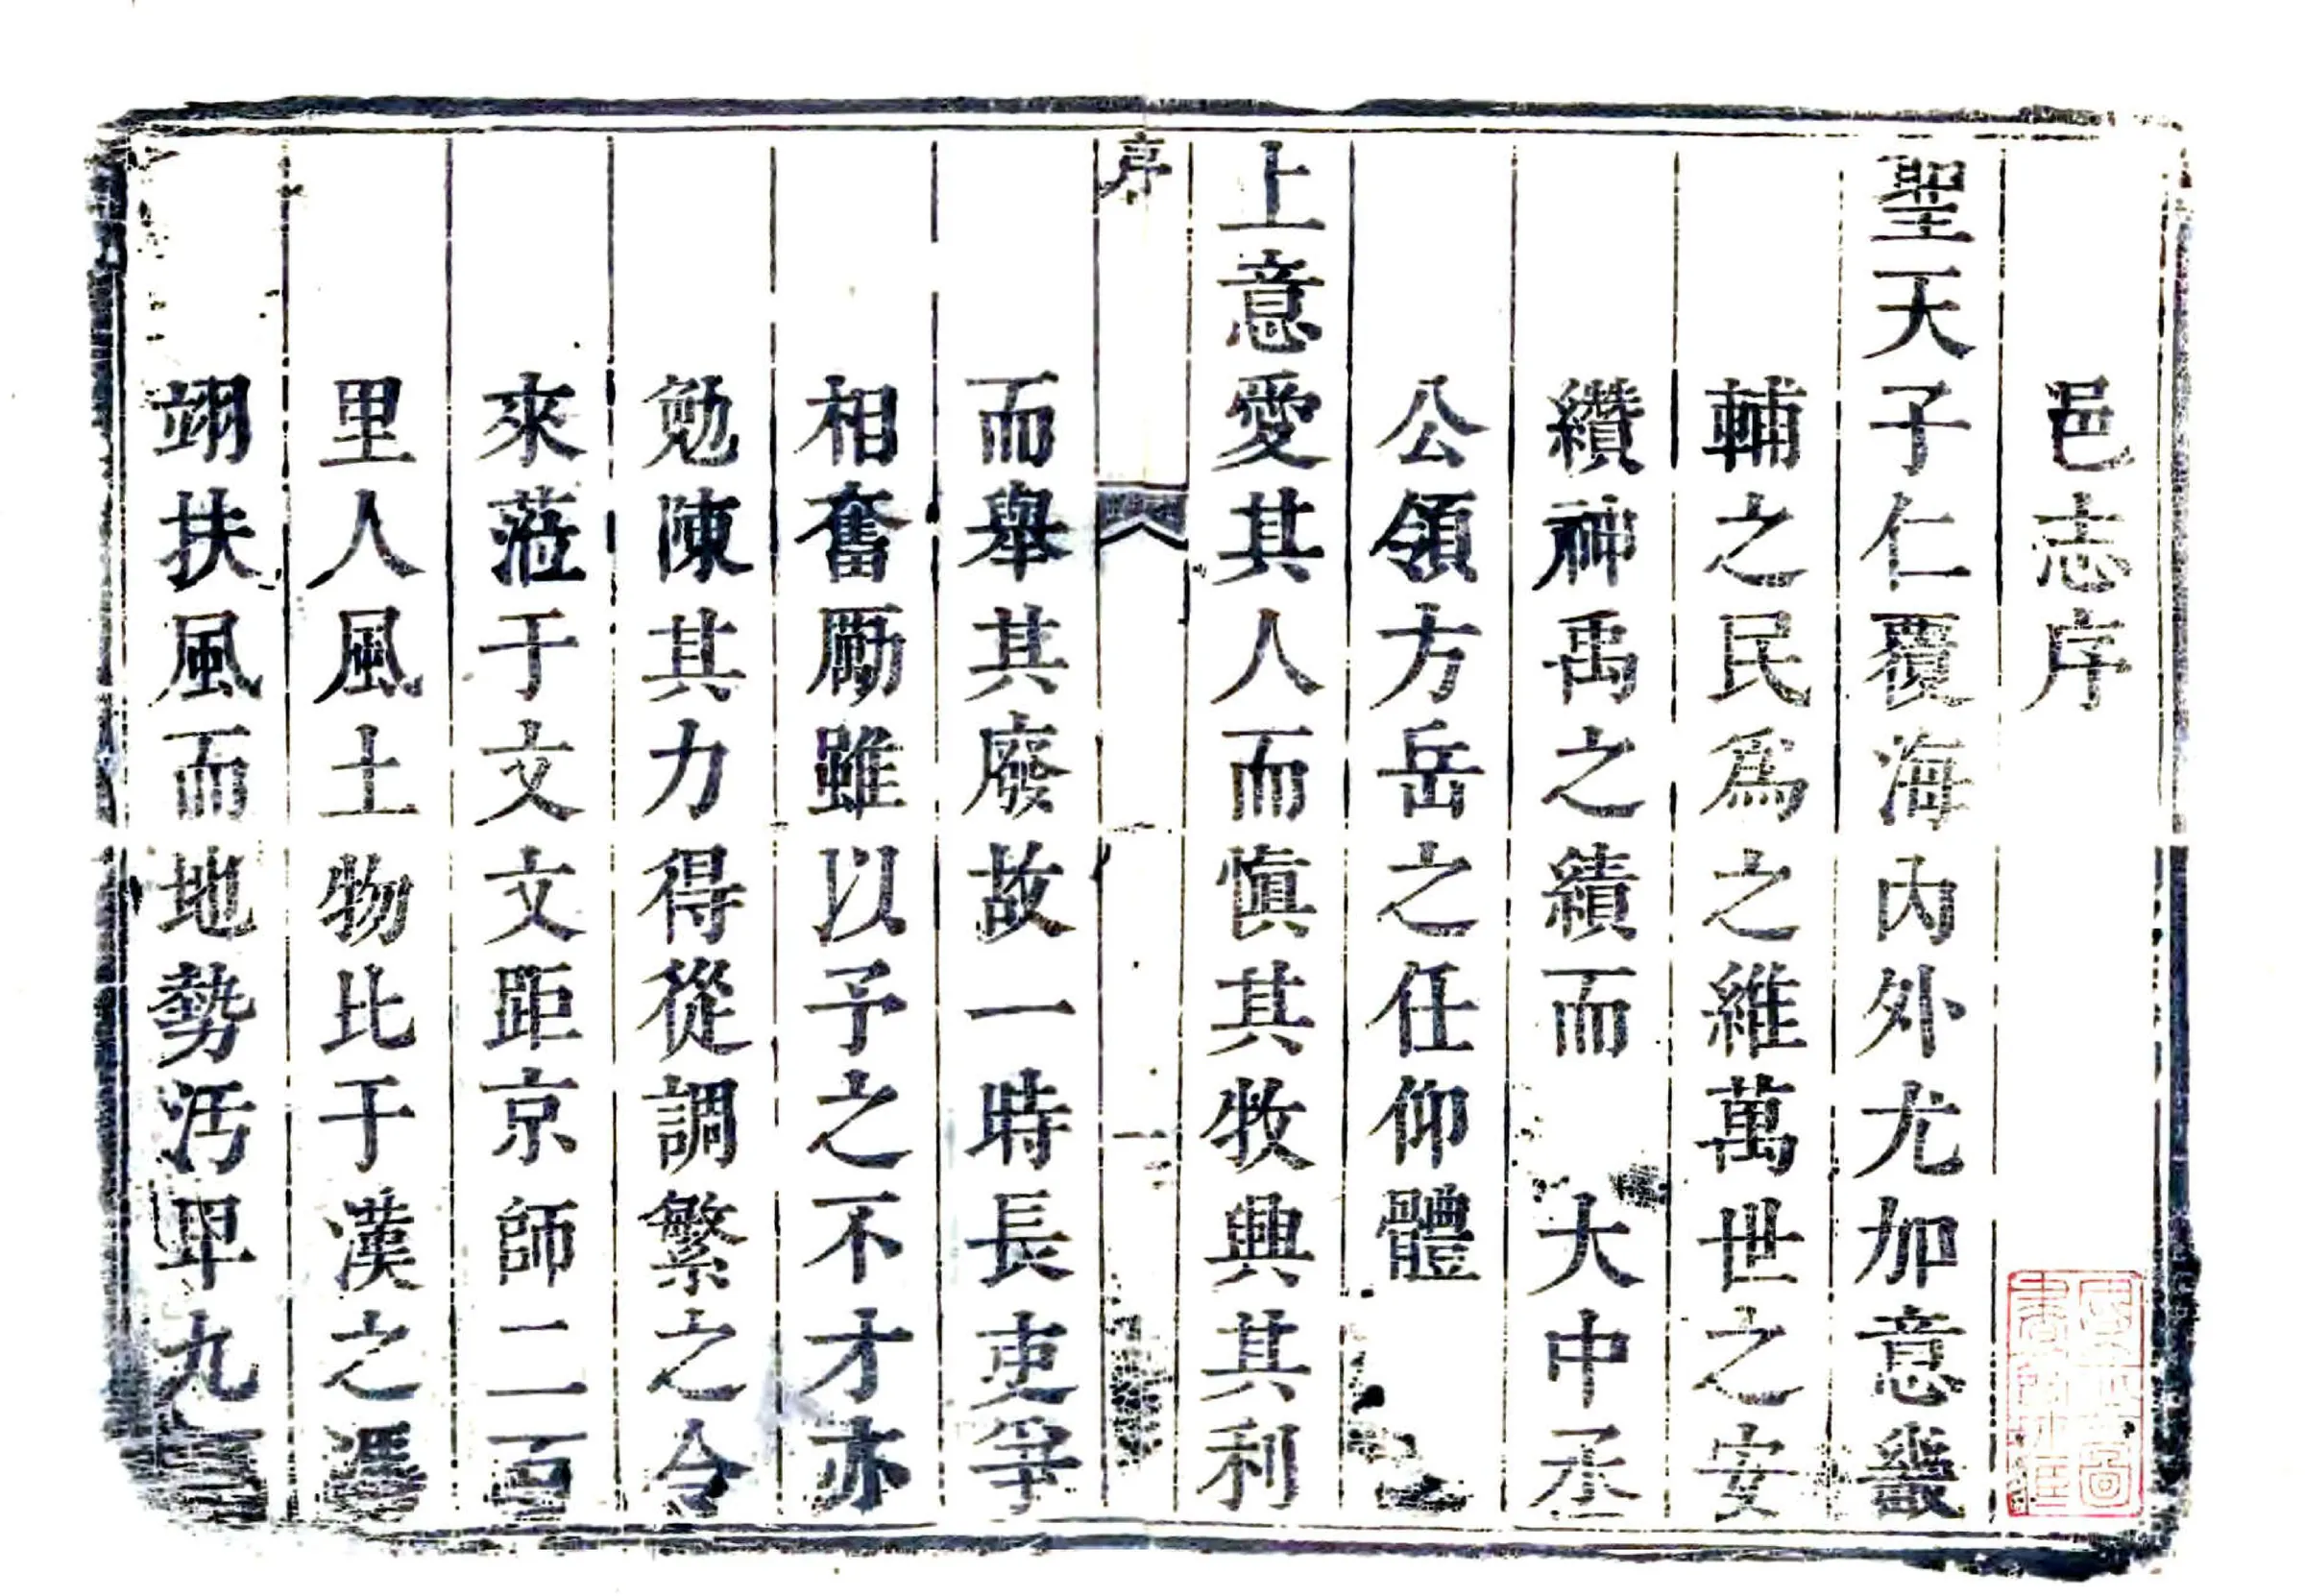 邑志序
聖天子仁覆海內外尤加意畿
輔之民為之維萬世之安
纘神禹之績而　大中丞
公領方岳之任仰體
上意愛其人而慎其牧興其利
序
一
而舉其廢故一時長吏爭
相奮勵雖以予之不才亦
勉陳其力得從調繁之令
來蒞于文文距京師二百
里人風土物比于漢之馮
翊扶風而地勢汚卑九